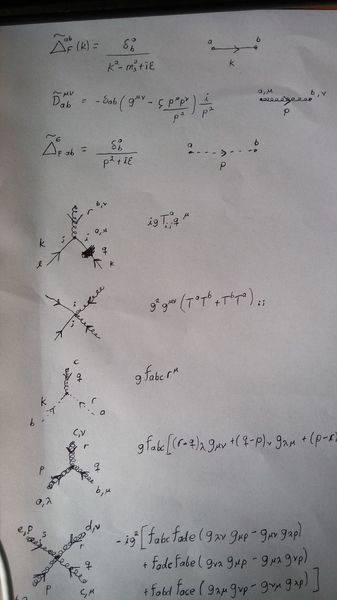 Δ̃_F^{ab}(k) = δ^a_b / (k² - m² + iε)    a b k
D̃^{μν}_{ab} = -δ_{ab} (g^{μν} - ξ p^μ p^ν / p²) i / p²    a,μ b,ν p
Δ̃^G_{F ab} = δ^a_b / (p² + iε)    a b p
b,ν r k j i a,μ q l k    ig T^a_{ij} q^μ
i j    g² g^{μν} (T^a T^b + T^b T^a)_{ij}
c q k r b a    g f_{abc} r^μ
c,ν r p q a,λ b,μ    g f_{abc} [(r-q)_λ g_{μν} + (q-p)_ν g_{λμ} + (p-r
e,ρ s d,ν r p q c,μ    -ig² [ f_{abc} f_{ade} (g_{λν} g_{μρ} - g_{μν} g_{λρ})
+ f_{adc} f_{abe} (g_{νλ} g_{μρ} - g_{μλ} g_{νρ})
+ f_{abd} f_{ace} (g_{λμ} g_{νρ} - g_{νμ} g_{λρ}) ]